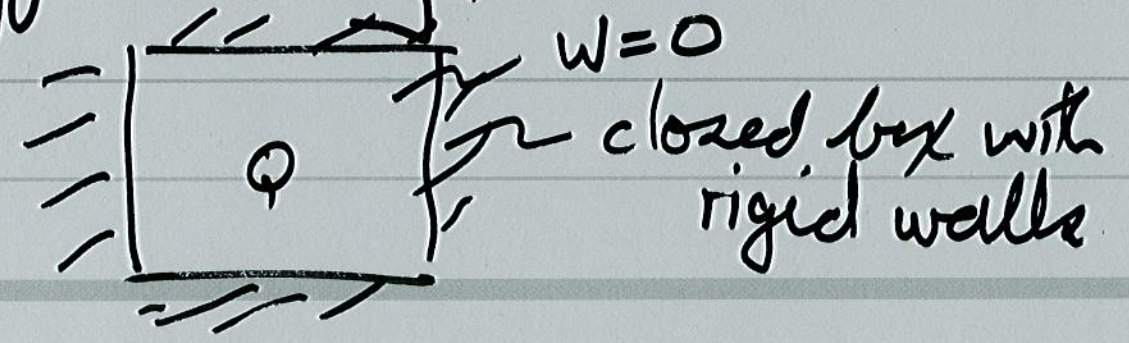 W=0
Q
closed box with
rigid walls